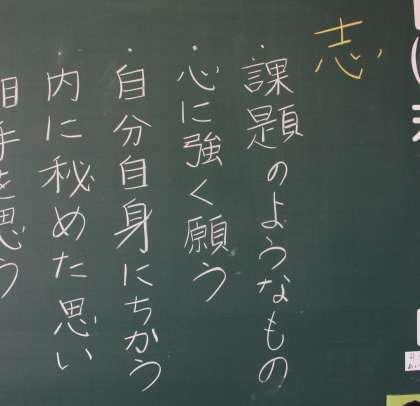 志
・課題のようなもの
・心に強く願う
・自分自身にちかう
・内に秘めた思い
相手を思う